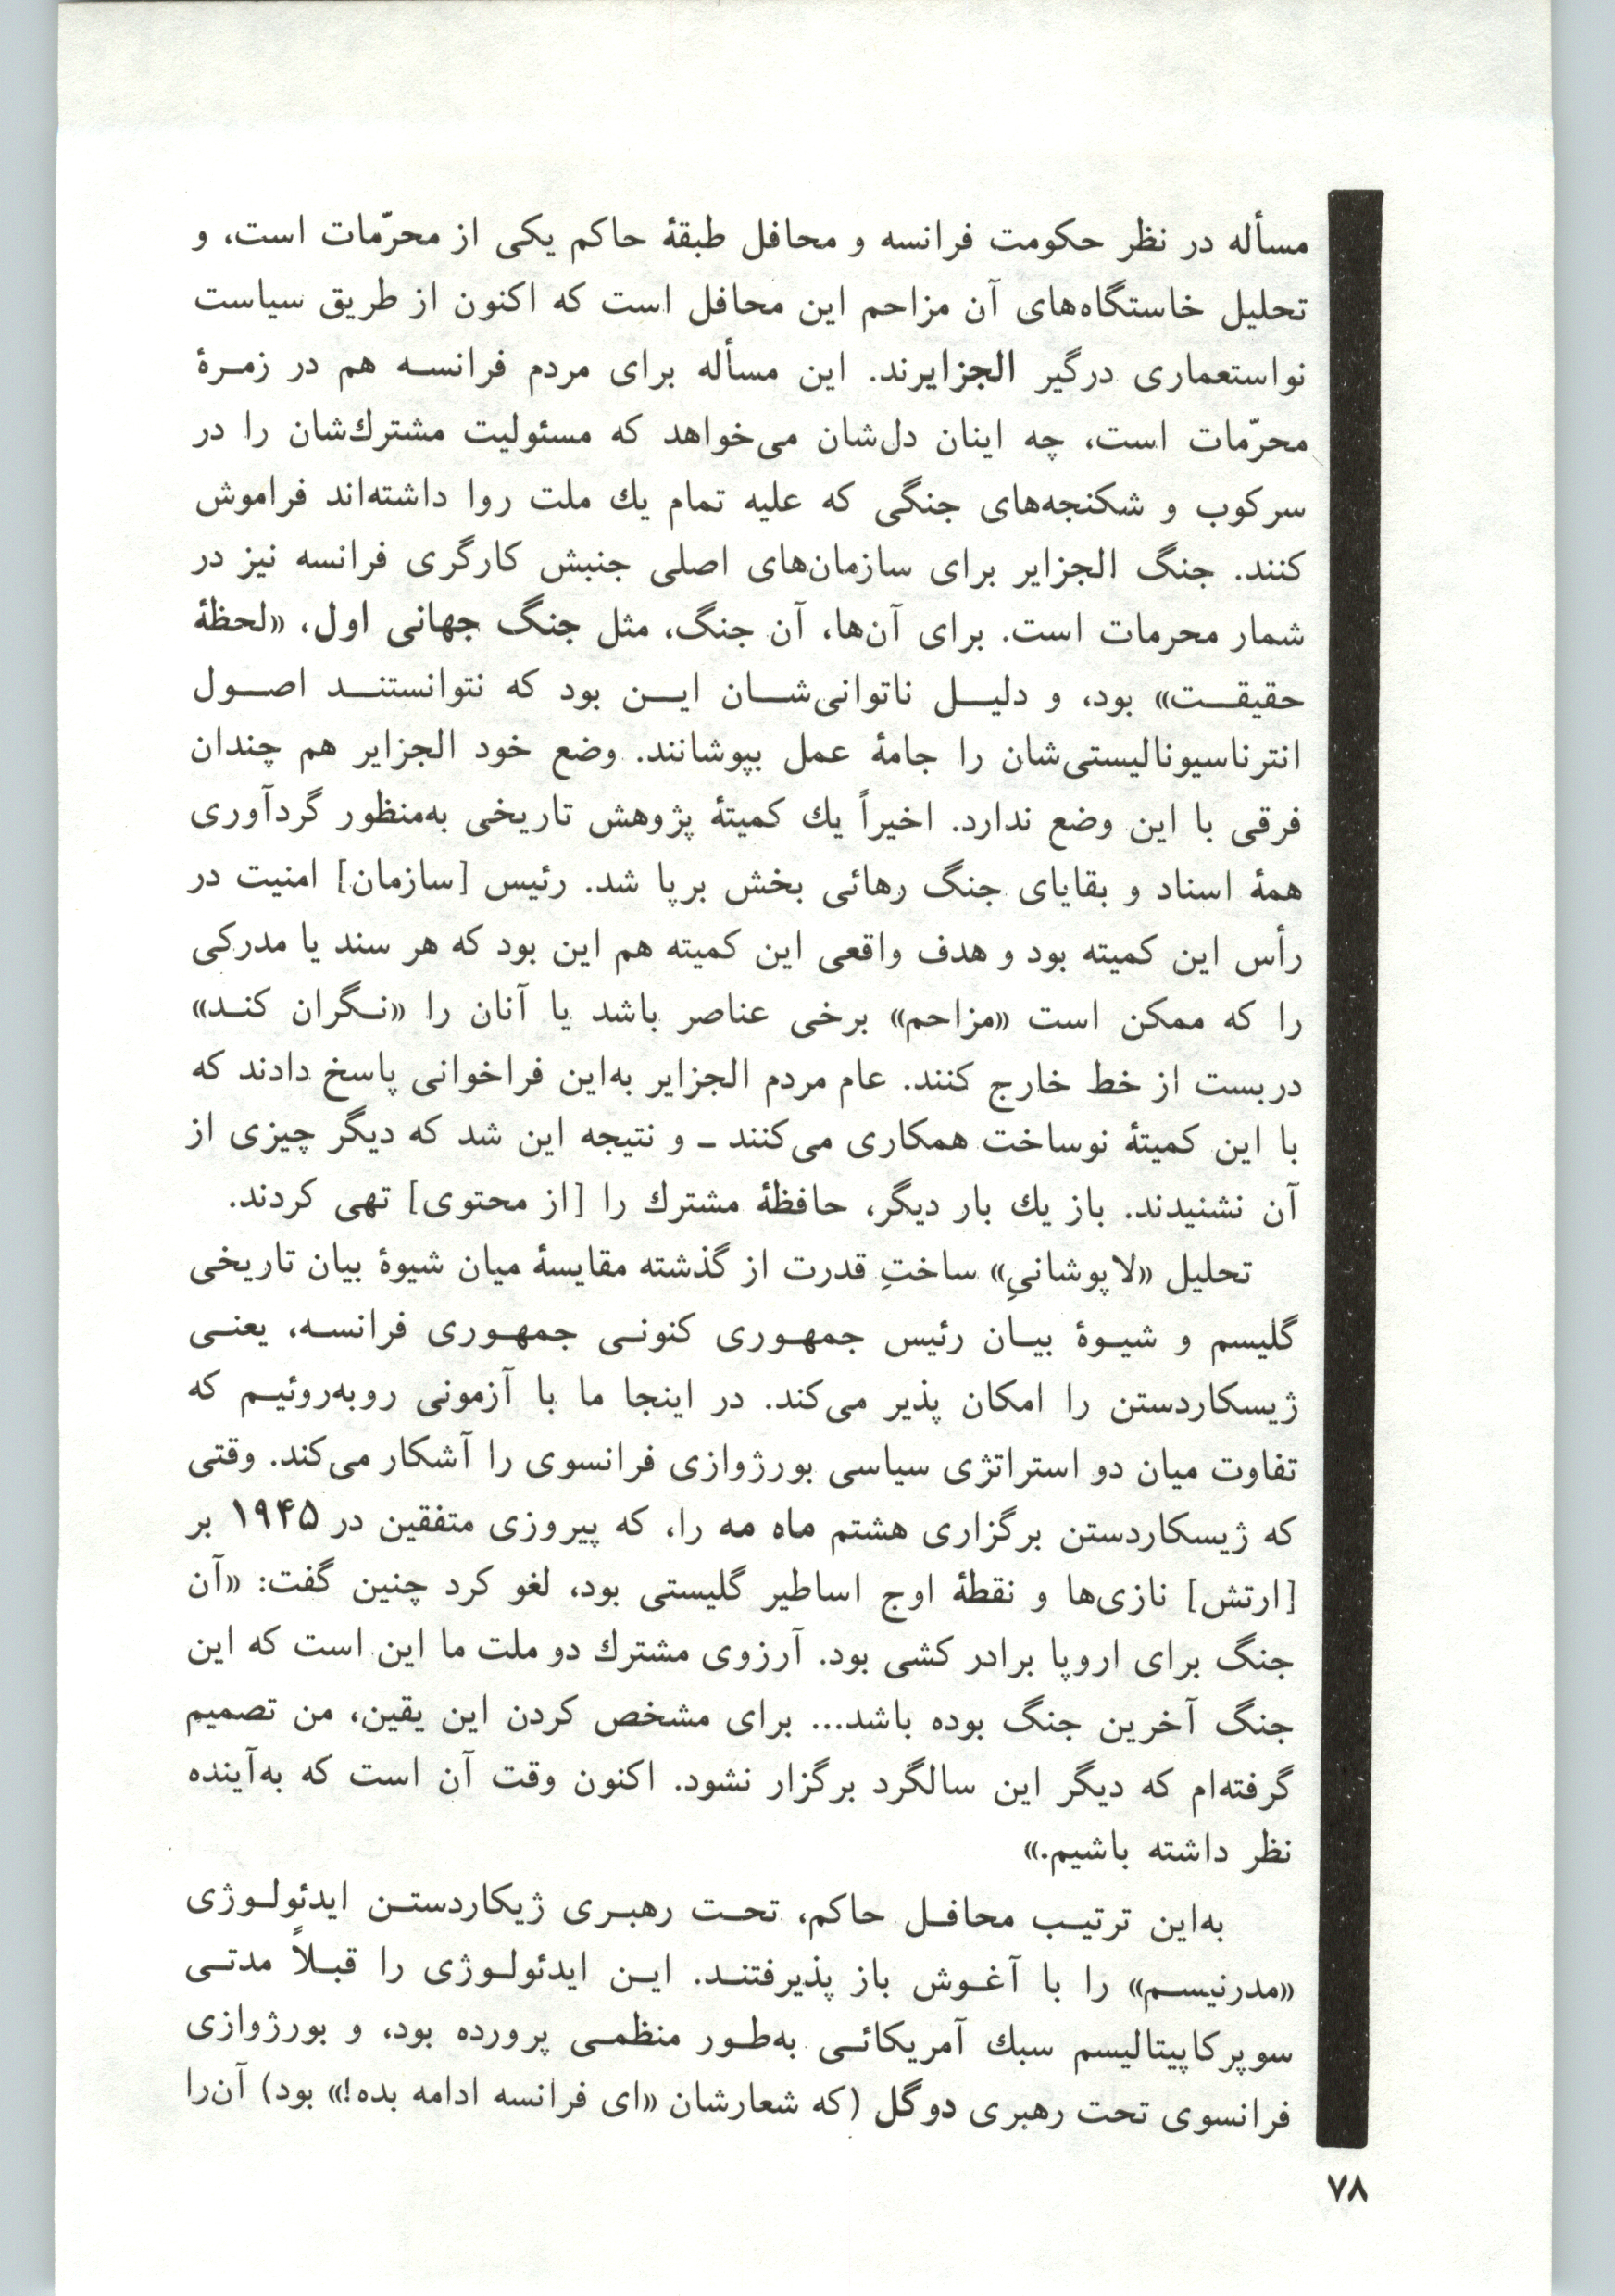 مسأله در نظر حکومت فرانسه و محافل طبقهٔ حاکم یکی از محرّمات است، و
تحلیل خاستگاه‌های آن مزاحم این محافل است که اکنون از طریق سیاست
نواستعماری درگیر الجزایرند. این مسأله برای مردم فرانسـه هم در زمـرهٔ
محرّمات است، چه اینان دل‌شان می‌خواهد که مسئولیت مشترك‌شان را در
سرکوب و شکنجه‌های جنگی که علیه تمام یك ملت روا داشته‌اند فراموش
کنند. جنگ الجزایر برای سازمان‌های اصلی جنبش کارگری فرانسه نیز در
شمار محرمات است. برای آن‌ها، آن جنگ، مثل جنگ جهانی اول، «لحظهٔ
حقیقـت» بود، و دلیـل ناتوانی‌شـان ایـن بود که نتوانستنـد اصـول
انترناسیونالیستی‌شان را جامهٔ عمل بپوشانند. وضع خود الجزایر هم چندان
فرقی با این وضع ندارد. اخیراً یك کمیتهٔ پژوهش تاریخی به‌منظور گردآوری
همهٔ اسناد و بقایای جنگ رهائی بخش برپا شد. رئیس [سازمان] امنیت در
رأس این کمیته بود و هدف واقعی این کمیته هم این بود که هر سند یا مدرکی
را که ممکن است «مزاحم» برخی عناصر باشد یا آنان را «نـگران کنـد»
دربست از خط خارج کنند. عام مردم الجزایر به‌این فراخوانی پاسخ دادند که
با این کمیتهٔ نوساخت همکاری می‌کنند ـ و نتیجه این شد که دیگر چیزی از
آن نشنیدند. باز یك بار دیگر، حافظهٔ مشترك را [از محتوی] تهی کردند.
تحلیل «لاپوشانیِ» ساختِ قدرت از گذشته مقایسهٔ میان شیوهٔ بیان تاریخی
گلیسم و شیـوهٔ بیـان رئیس جمهـوری کنونـی جمهـوری فرانسـه، یعنـی
ژیسکاردستن را امکان پذیر می‌کند. در اینجا ما با آزمونی روبه‌روئیـم که
تفاوت میان دو استراتژی سیاسی بورژوازی فرانسوی را آشکار می‌کند. وقتی
که ژیسکاردستن برگزاری هشتم ماه مه را، که پیروزی متفقین در ۱۹۴۵ بر
[ارتش] نازی‌ها و نقطهٔ اوج اساطیر گلیستی بود، لغو کرد چنین گفت: «آن
جنگ برای اروپا برادر کشی بود. آرزوی مشترك دو ملت ما این است که این
جنگ آخرین جنگ بوده باشد... برای مشخص کردن این یقین، من تصمیم
گرفته‌ام که دیگر این سالگرد برگزار نشود. اکنون وقت آن است که به‌آینده
نظر داشته باشیم.»
به‌این ترتیـب محافـل حاکم، تحـت رهبـری ژیکاردستـن ایدئولـوژی
«مدرنیسـم» را با آغـوش باز پذیرفتنـد. ایـن ایدئولـوژی را قبـلاً مدتـی
سوپرکاپیتالیسم سبك آمریکائـی به‌طـور منظمـی پرورده بود، و بورژوازی
فرانسوی تحت رهبری دوگل (که شعارشان «ای فرانسه ادامه بده!» بود) آن‌را
۷۸